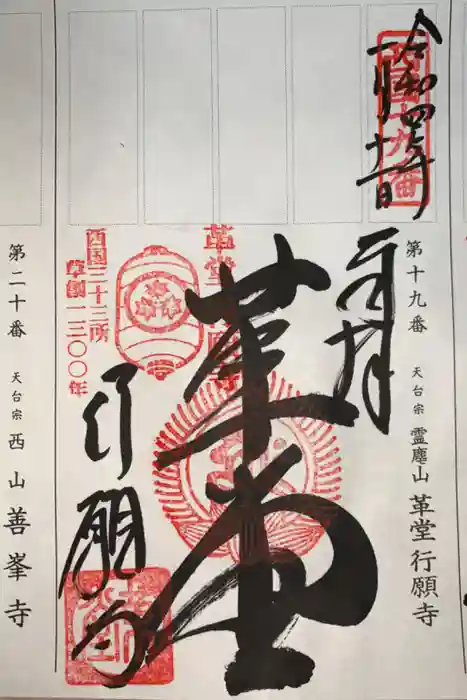 令和四年
一月十一日
西国十九番
第十九番 天台宗 霊麀山 革堂行願寺
奉拝
革堂
革堂
西国三十三所
草創一三〇〇年
行願寺
第二十番 天台宗 西山 善峯寺